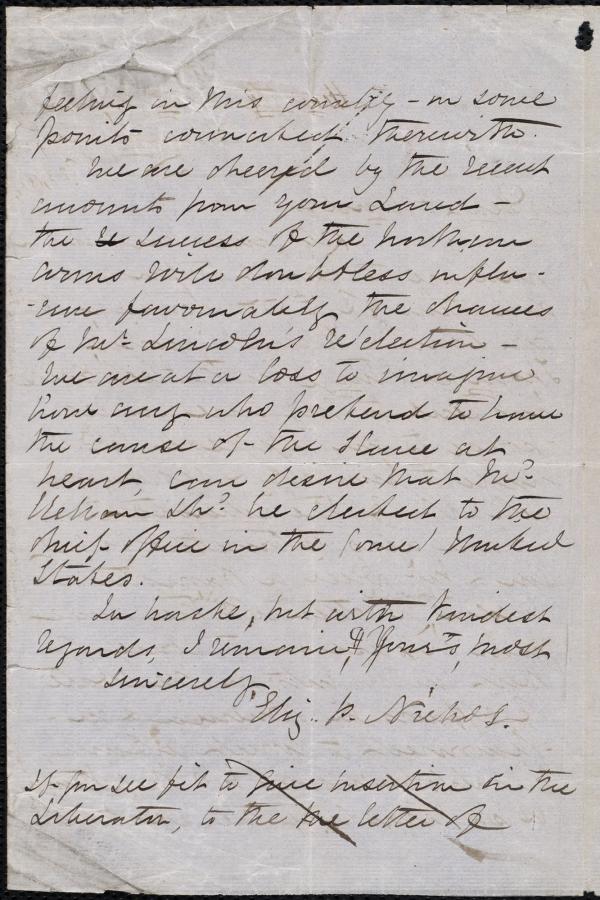 feeling in this country - on some
points connected therewith.
We are cheered by the recent
accounts from your Land -
the success of the northern
arms will doubtless influ-
-ence favourably the chances
of Mr. Lincoln's re'election -
We are at a loss to imagine
how any who pretend to have
the cause of the Slave at
heart, can desire that Mr.
Clellan shd. be elected to the
chief office in the (once) United
States.
In haste, but with kindest
regards, I remain, Yours, most
sincerely,
Eliz. P. Nichol.
If you see fit to give insertion in the
Liberator, to the the letter of